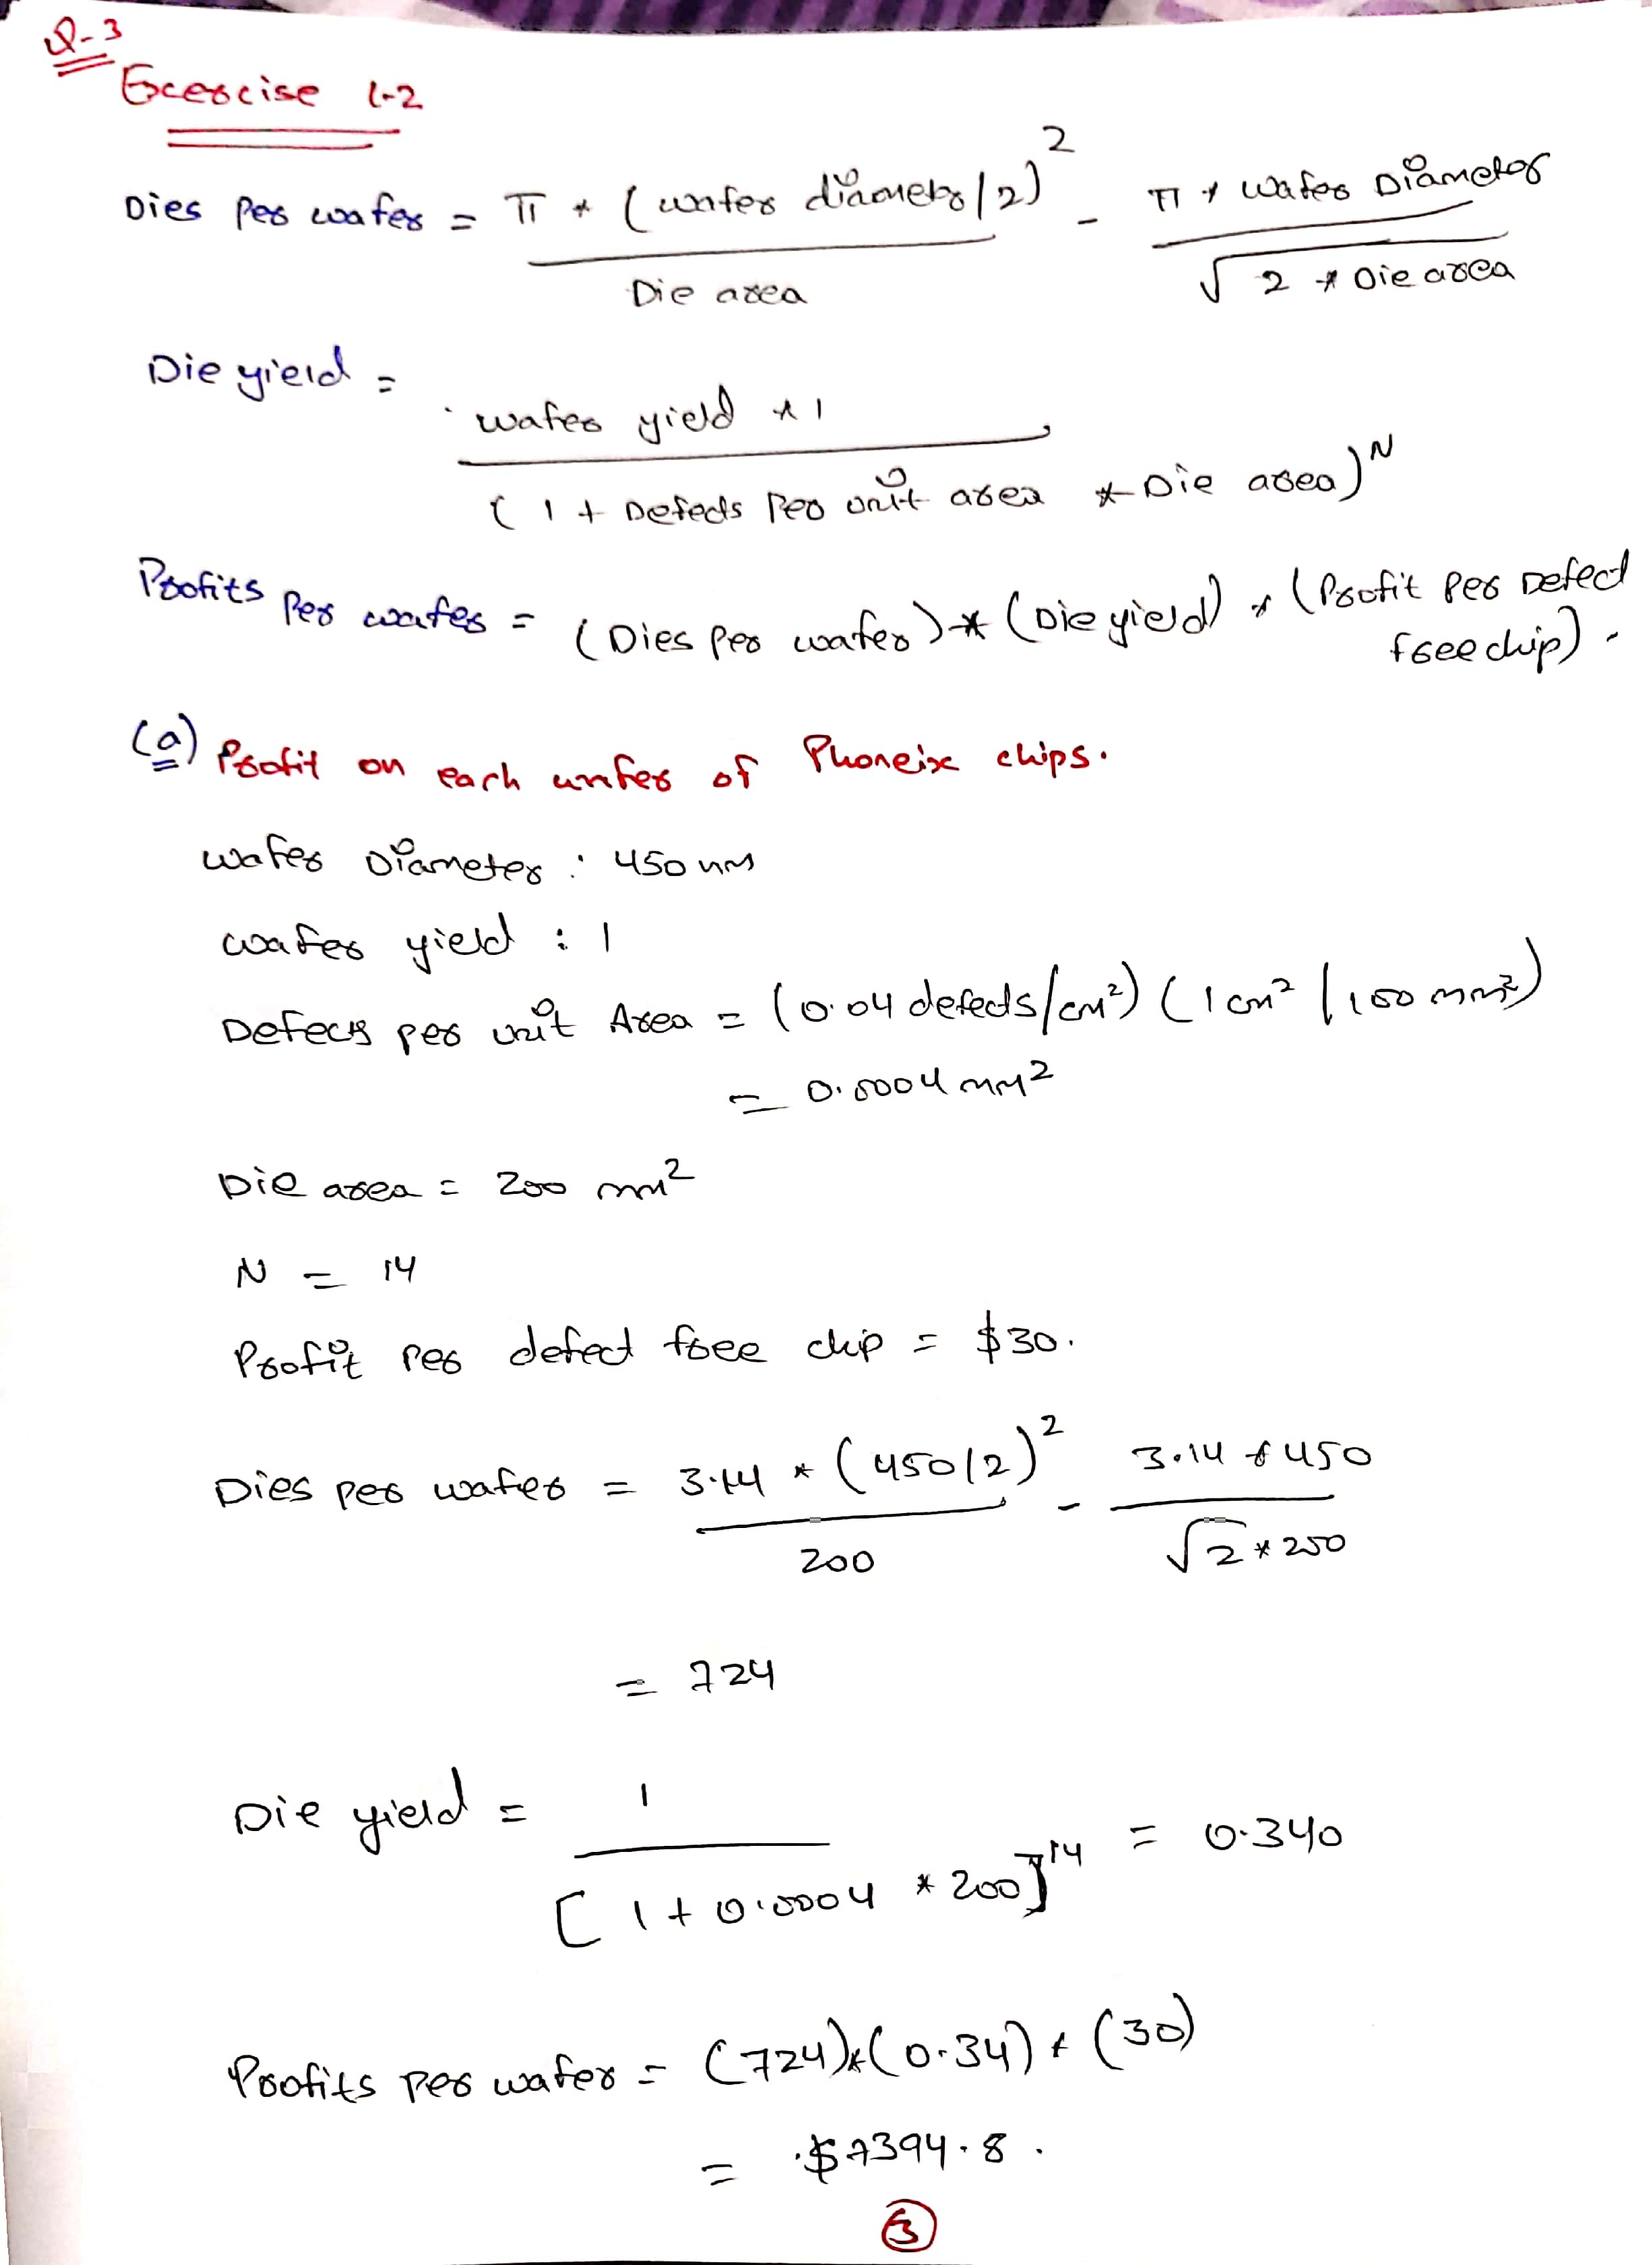 Q-3
Excercise 1.2
Dies per wafer = π * (wafer diameter/2)² / Die area - π * wafer Diameter / √2 * Die area
Die yield = wafer yield * 1 / (1 + Defects Per unit area * Die area)^N
Profits Per wafer = (Dies per wafer) * (Die yield) * (Profit per Defect
free chip).
(a) Profit on each wafer of Phoneix chips.
wafer Diameter : 450 mm
wafer yield : 1
Defects per unit Area = (0.04 defects/cm²) (1 cm² / 100 mm²)
= 0.0004 mm²
Die area = 200 mm²
N = 14
Profit per defect free chip = $30.
Dies per wafer = 3.14 * (450/2)² / 200 - 3.14 * 450 / √2 * 200
= 724
Die yield = 1 / [1 + 0.0004 * 200]^14 = 0.340
Profits per wafer = (724)*(0.34) * (30)
= $7394.8.
3